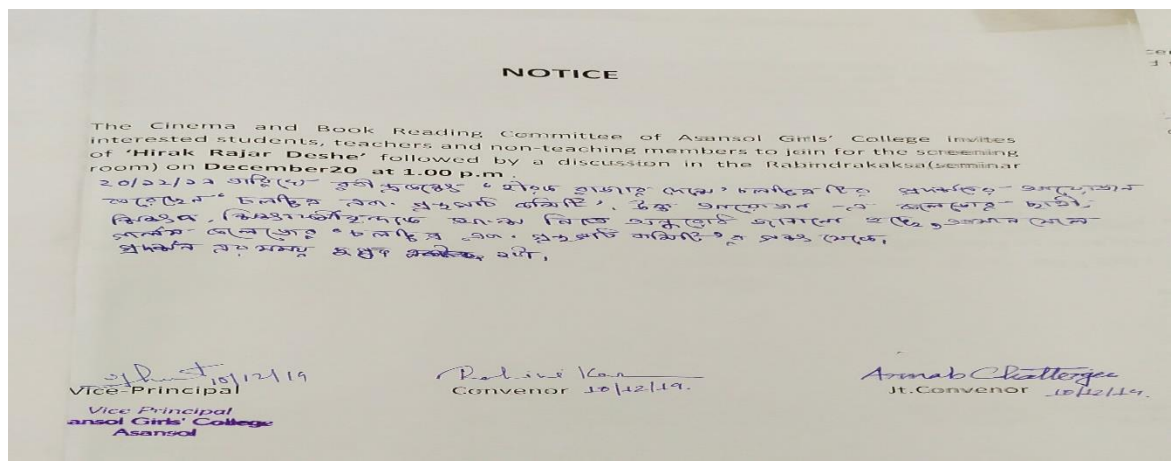 NOTICE
The Cinema and Book Reading Committee of Asansol Girls' College invites
interested students, teachers and non-teaching members to join for the screening
of 'Hirak Rajar Deshe' followed by a discussion in the Rabindrakaksa(seminar
room) on December20 at 1.00 p.m
২০/১২/১৯ তারিখে রবীন্দ্রকক্ষে 'হীরক রাজার দেশে' চলচ্চিত্রটির প্রদর্শনের আয়োজন
করেছেন 'চলচ্চিত্র এবং গ্রন্থপাঠ কমিটি'। উক্ত আয়োজন -এ কলেজের ছাত্রী,
শিক্ষক, শিক্ষাকর্মীবৃন্দকে অংশ নিতে অনুরোধ জানানো হচ্ছে,
কলেজের 'চলচ্চিত্র এবং গ্রন্থপাঠ কমিটি'র পক্ষ থেকে।
প্রদর্শন এর সময় দুপুর ঘটা।
10/12/19
Vice-Principal
Vice Principal
ansol Girls' College
Asansol
Rohini Kar
Convenor 10/12/19.
Arnab Chatterjee
Jt.Convenor 10/12/19.